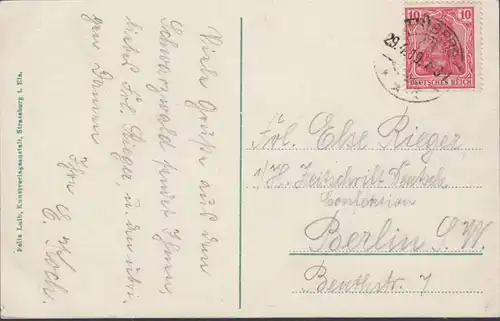 Viele Grüße aus dem
Schwarzwald sendet Ihnen,
liebes Frl. Rieger, u. den übri-
gen Damen
Ihre E. Koch.
Felix Luib, Kunstverlagsanstalt, Strassburg i. Els.
10 10
DEUTSCHES REICH
Frl. Else Rieger
Zeitschrift Deutsche
Confektion
Berlin S.W.
Beuthstr. 7